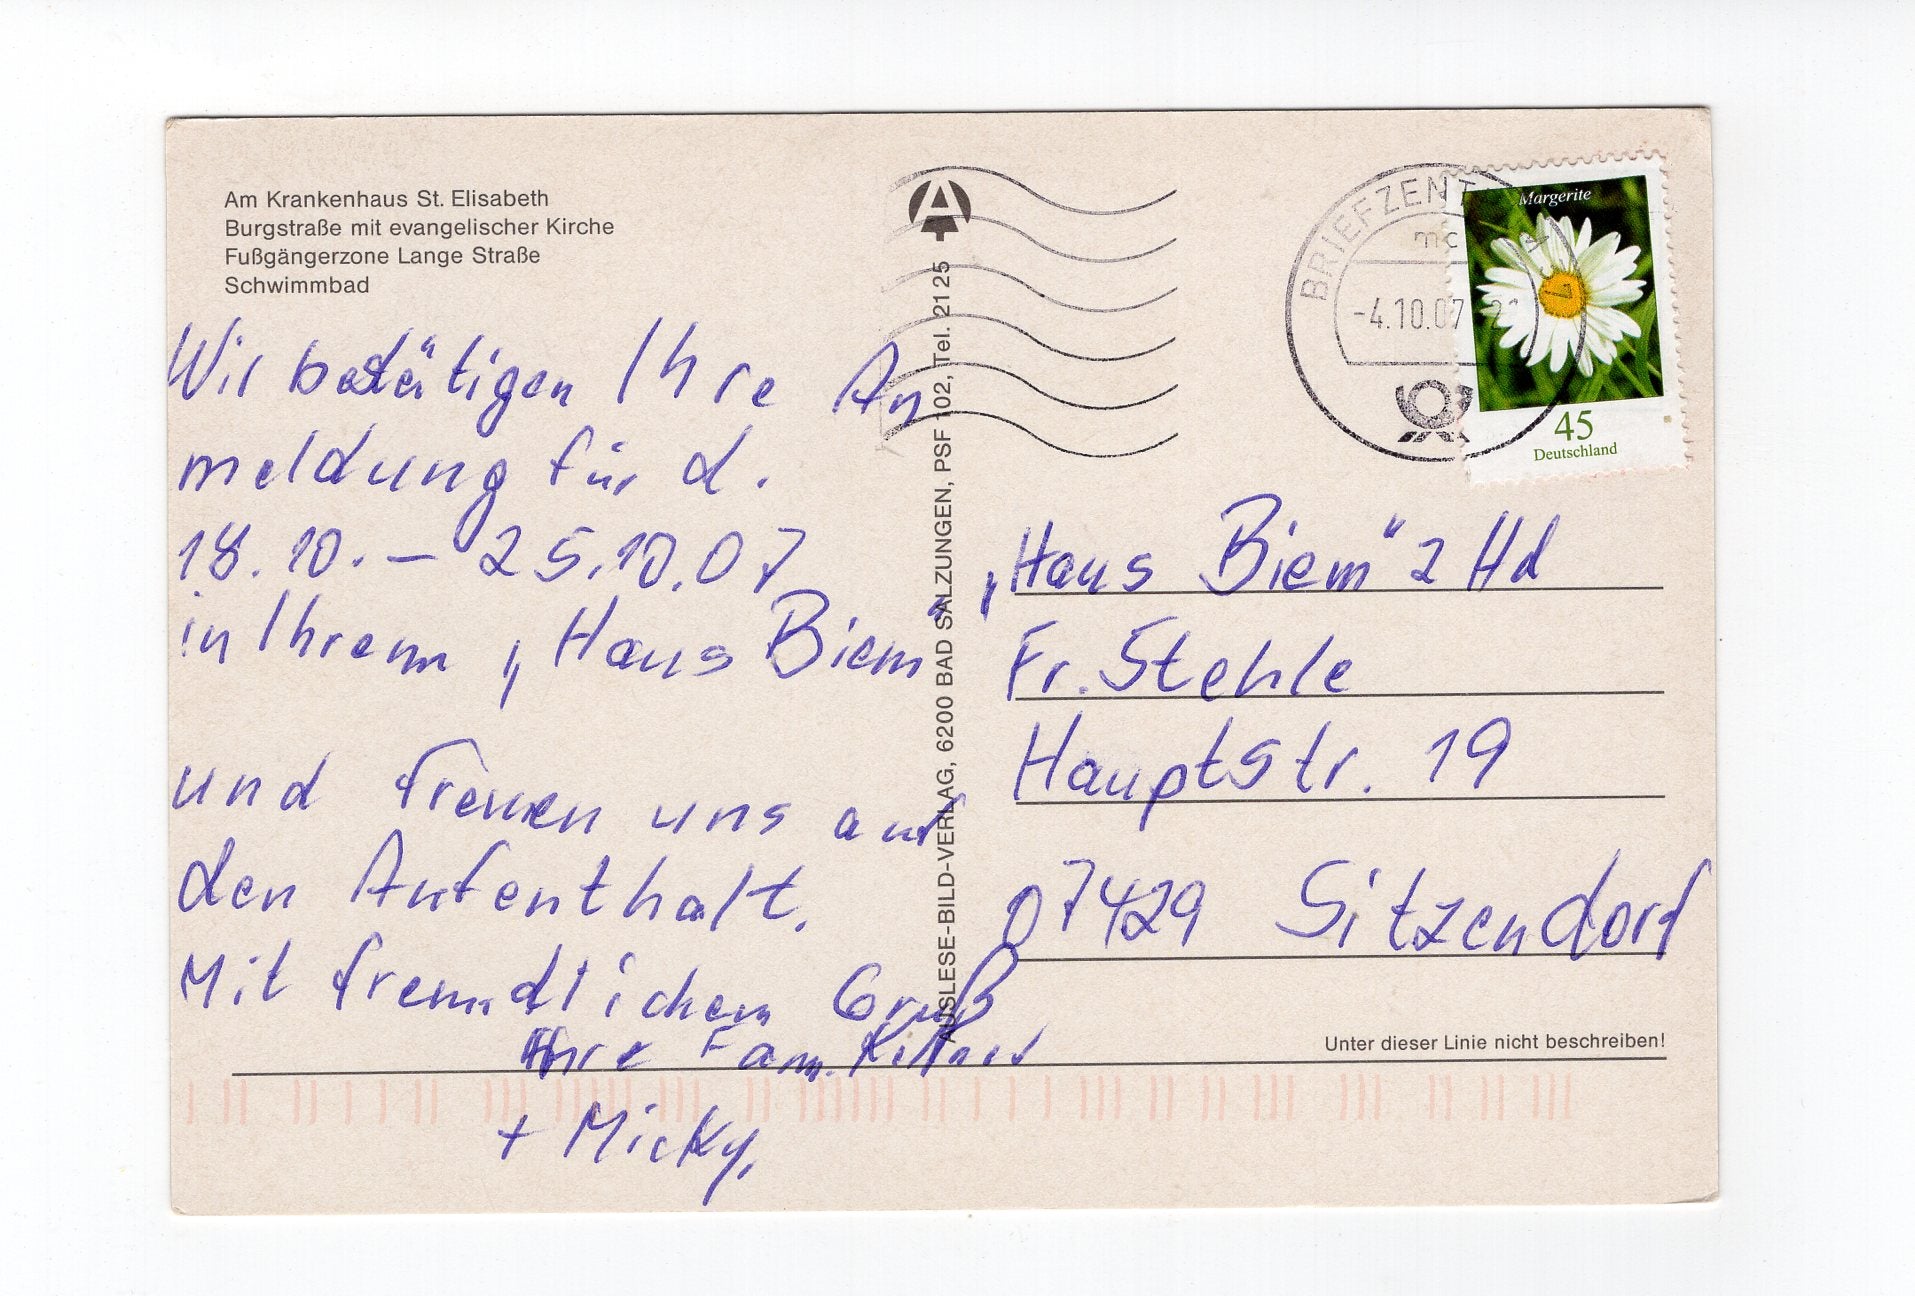 Am Krankenhaus St. Elisabeth
Burgstraße mit evangelischer Kirche
Fußgängerzone Lange Straße
Schwimmbad
Wir bestätigen Ihre An
meldung für d.
18.10. – 25.10.07
in Ihrem „Haus Biem"
und freuen uns auf
den Aufenthalt.
Mit freundlichem Gruß
Ihre Fam.
+ Micky.
AUSLESE-BILD-VERLAG, 6200 BAD SALZUNGEN, PSF 102, Tel. 21 25
BRIEFZENT
mc
-4.10.07
Margerite
45
Deutschland
„Haus Biem" z Hd
Fr. Stehle
Hauptstr. 19
07429 Sitzendorf
Unter dieser Linie nicht beschreiben!